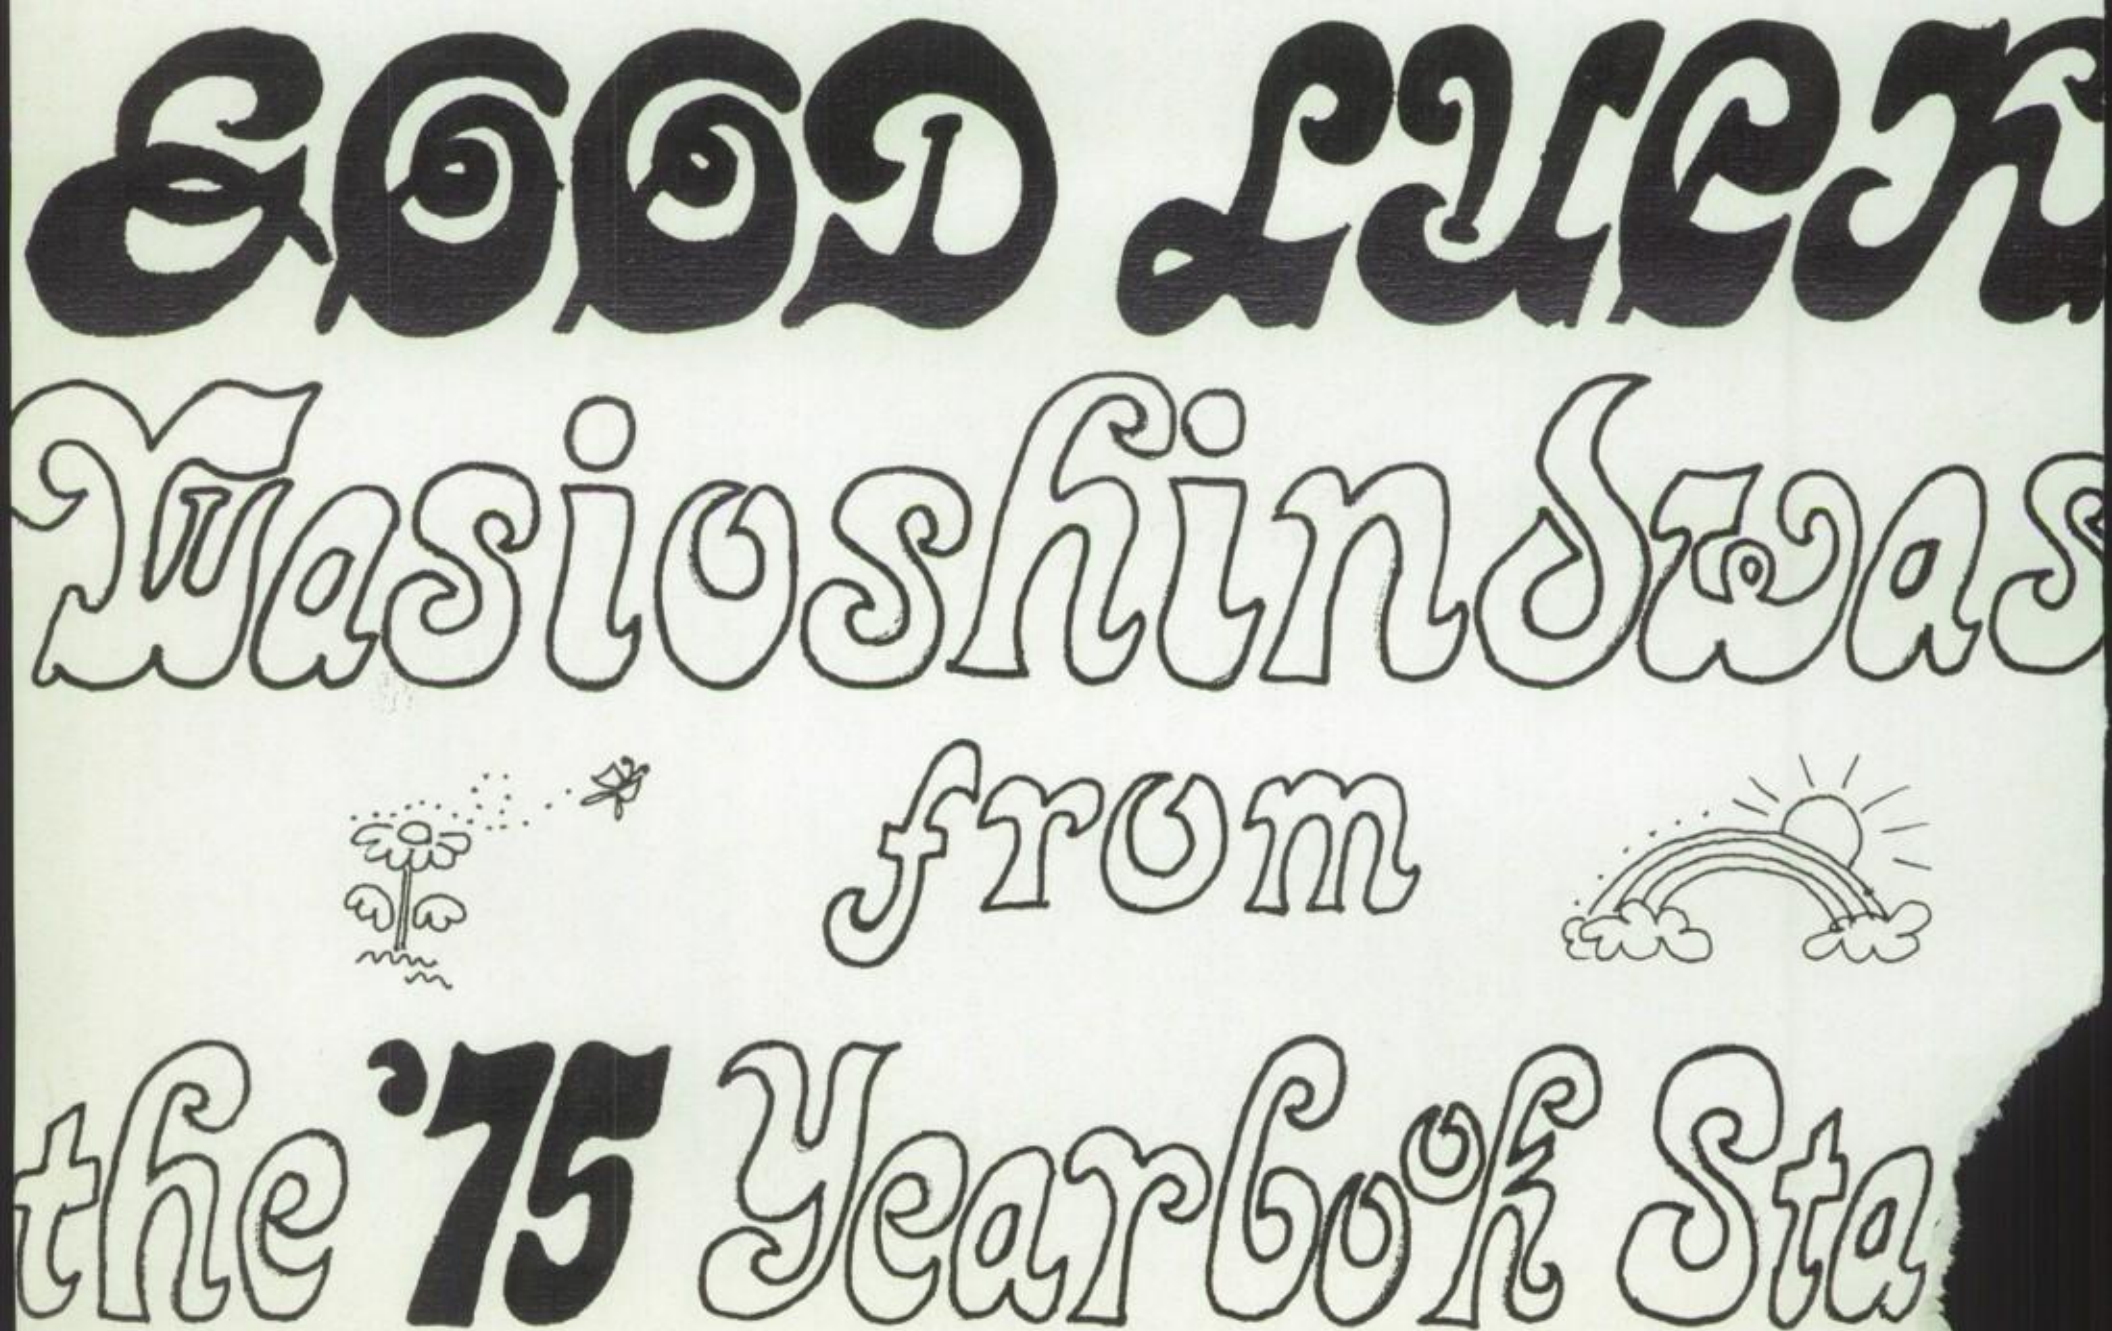 GOOD LUCK
Wasioshindwas
from
the '75 Yearbook Sta